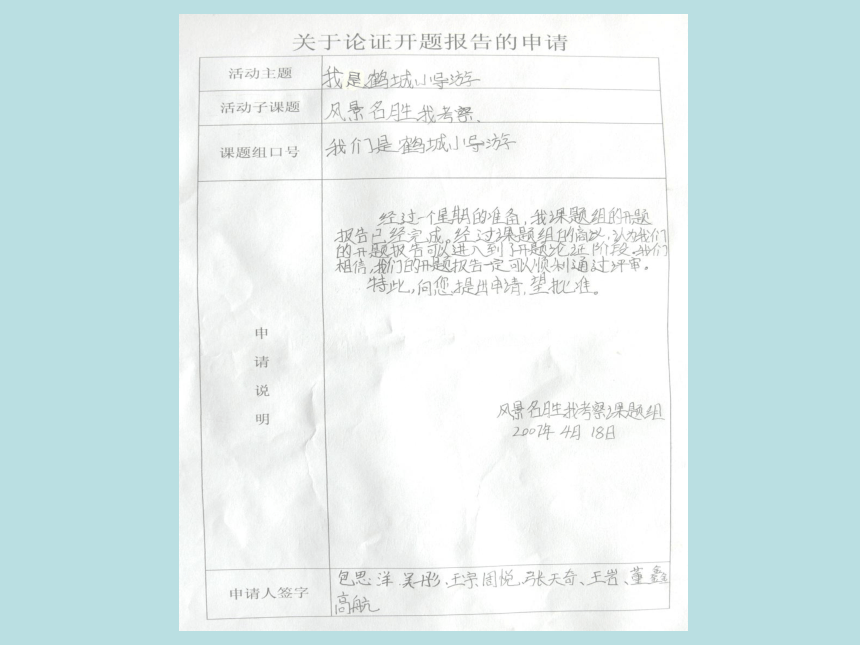 关于论证开题报告的申请
活动主题 我是鹤城小导游
活动子课题 风景名胜我考察.
课题组口号 我们是鹤城小导游
申请说明
经过一个星期的准备,我课题组的开题
报告已经完成。经过课题组的商议,认为我们
的开题报告可以进入到了开题论证阶段。我们
相信,我们的开题报告一定可以顺利通过评审。
特此,向您提出申请,望批准。
风景名胜我考察课题组
2007年4月18日
申请人签字 包思洋、吴彤、王宗周悦、张天奇、王岩、董鑫
高航